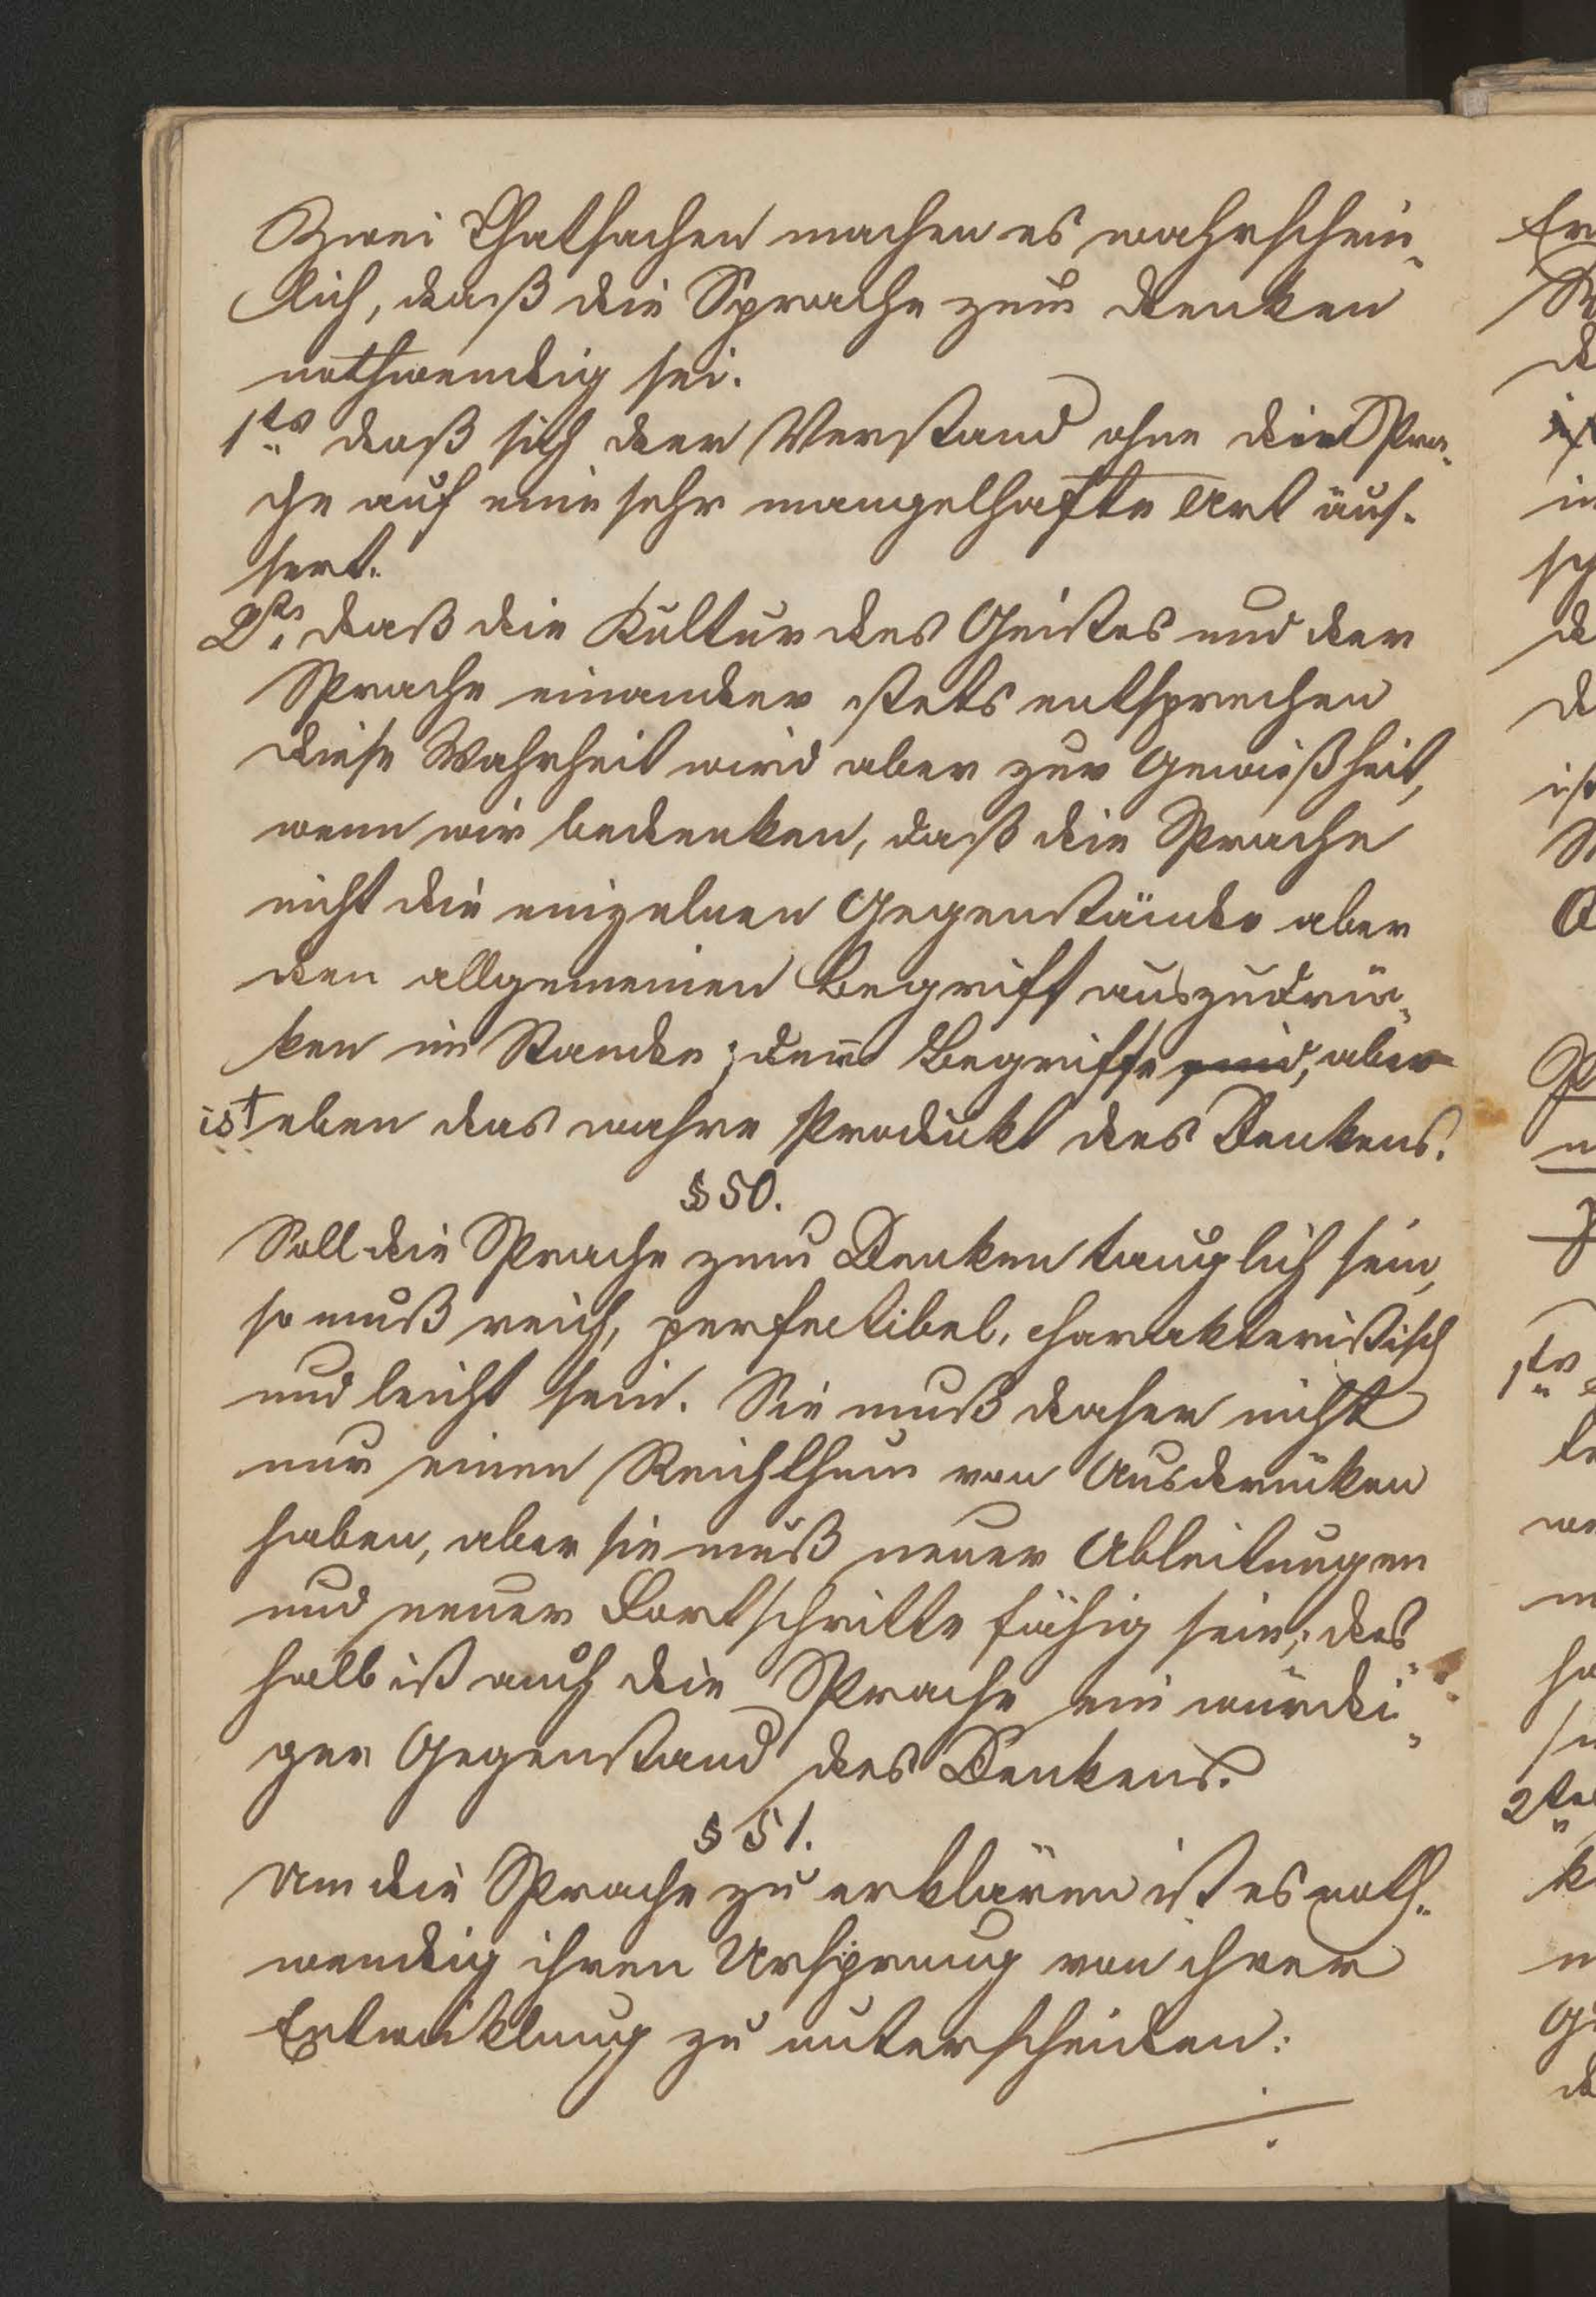 Zwei Thatsachen machen es wahrschein-
lich, daß die Sprache zum denken
nothwendig sei.
1tens daß sich der Verstand ohne die Spra-
che auf eine sehr mangelhafte Art äus-
sert.
2tens daß die Kultur des Geistes und der
Sprache einander stets entsprechen
diese Wahrheit wird aber zur Gewißheit,
wenn wir bedenken, daß die Sprache
nicht die einzelnen Gegenstände aber
den allgemeinen Begriff auszudrü-
ken im Stande; denn Begriffe sind, aber
ist eben das wahre Produkt des Denkens.
§ 50.
Soll die Sprache zum Denken tauglich sein,
so muß reich, perfectibel, charakteristisch
und leicht sein. Sie muß daher nicht
nur einen Reichthum von Ausdrücken
haben, aber sie muß neuer Ableitungen
und neuer Fortschritte fähig sein; des-
halb ist auch die Sprache ein würdi-
ger Gegenstand des Denkens.
§ 51.
Um die Sprache zu erklären ist es noth-
wendig ihren Ursprung von ihrer
Entwicklung zu unterscheiden: